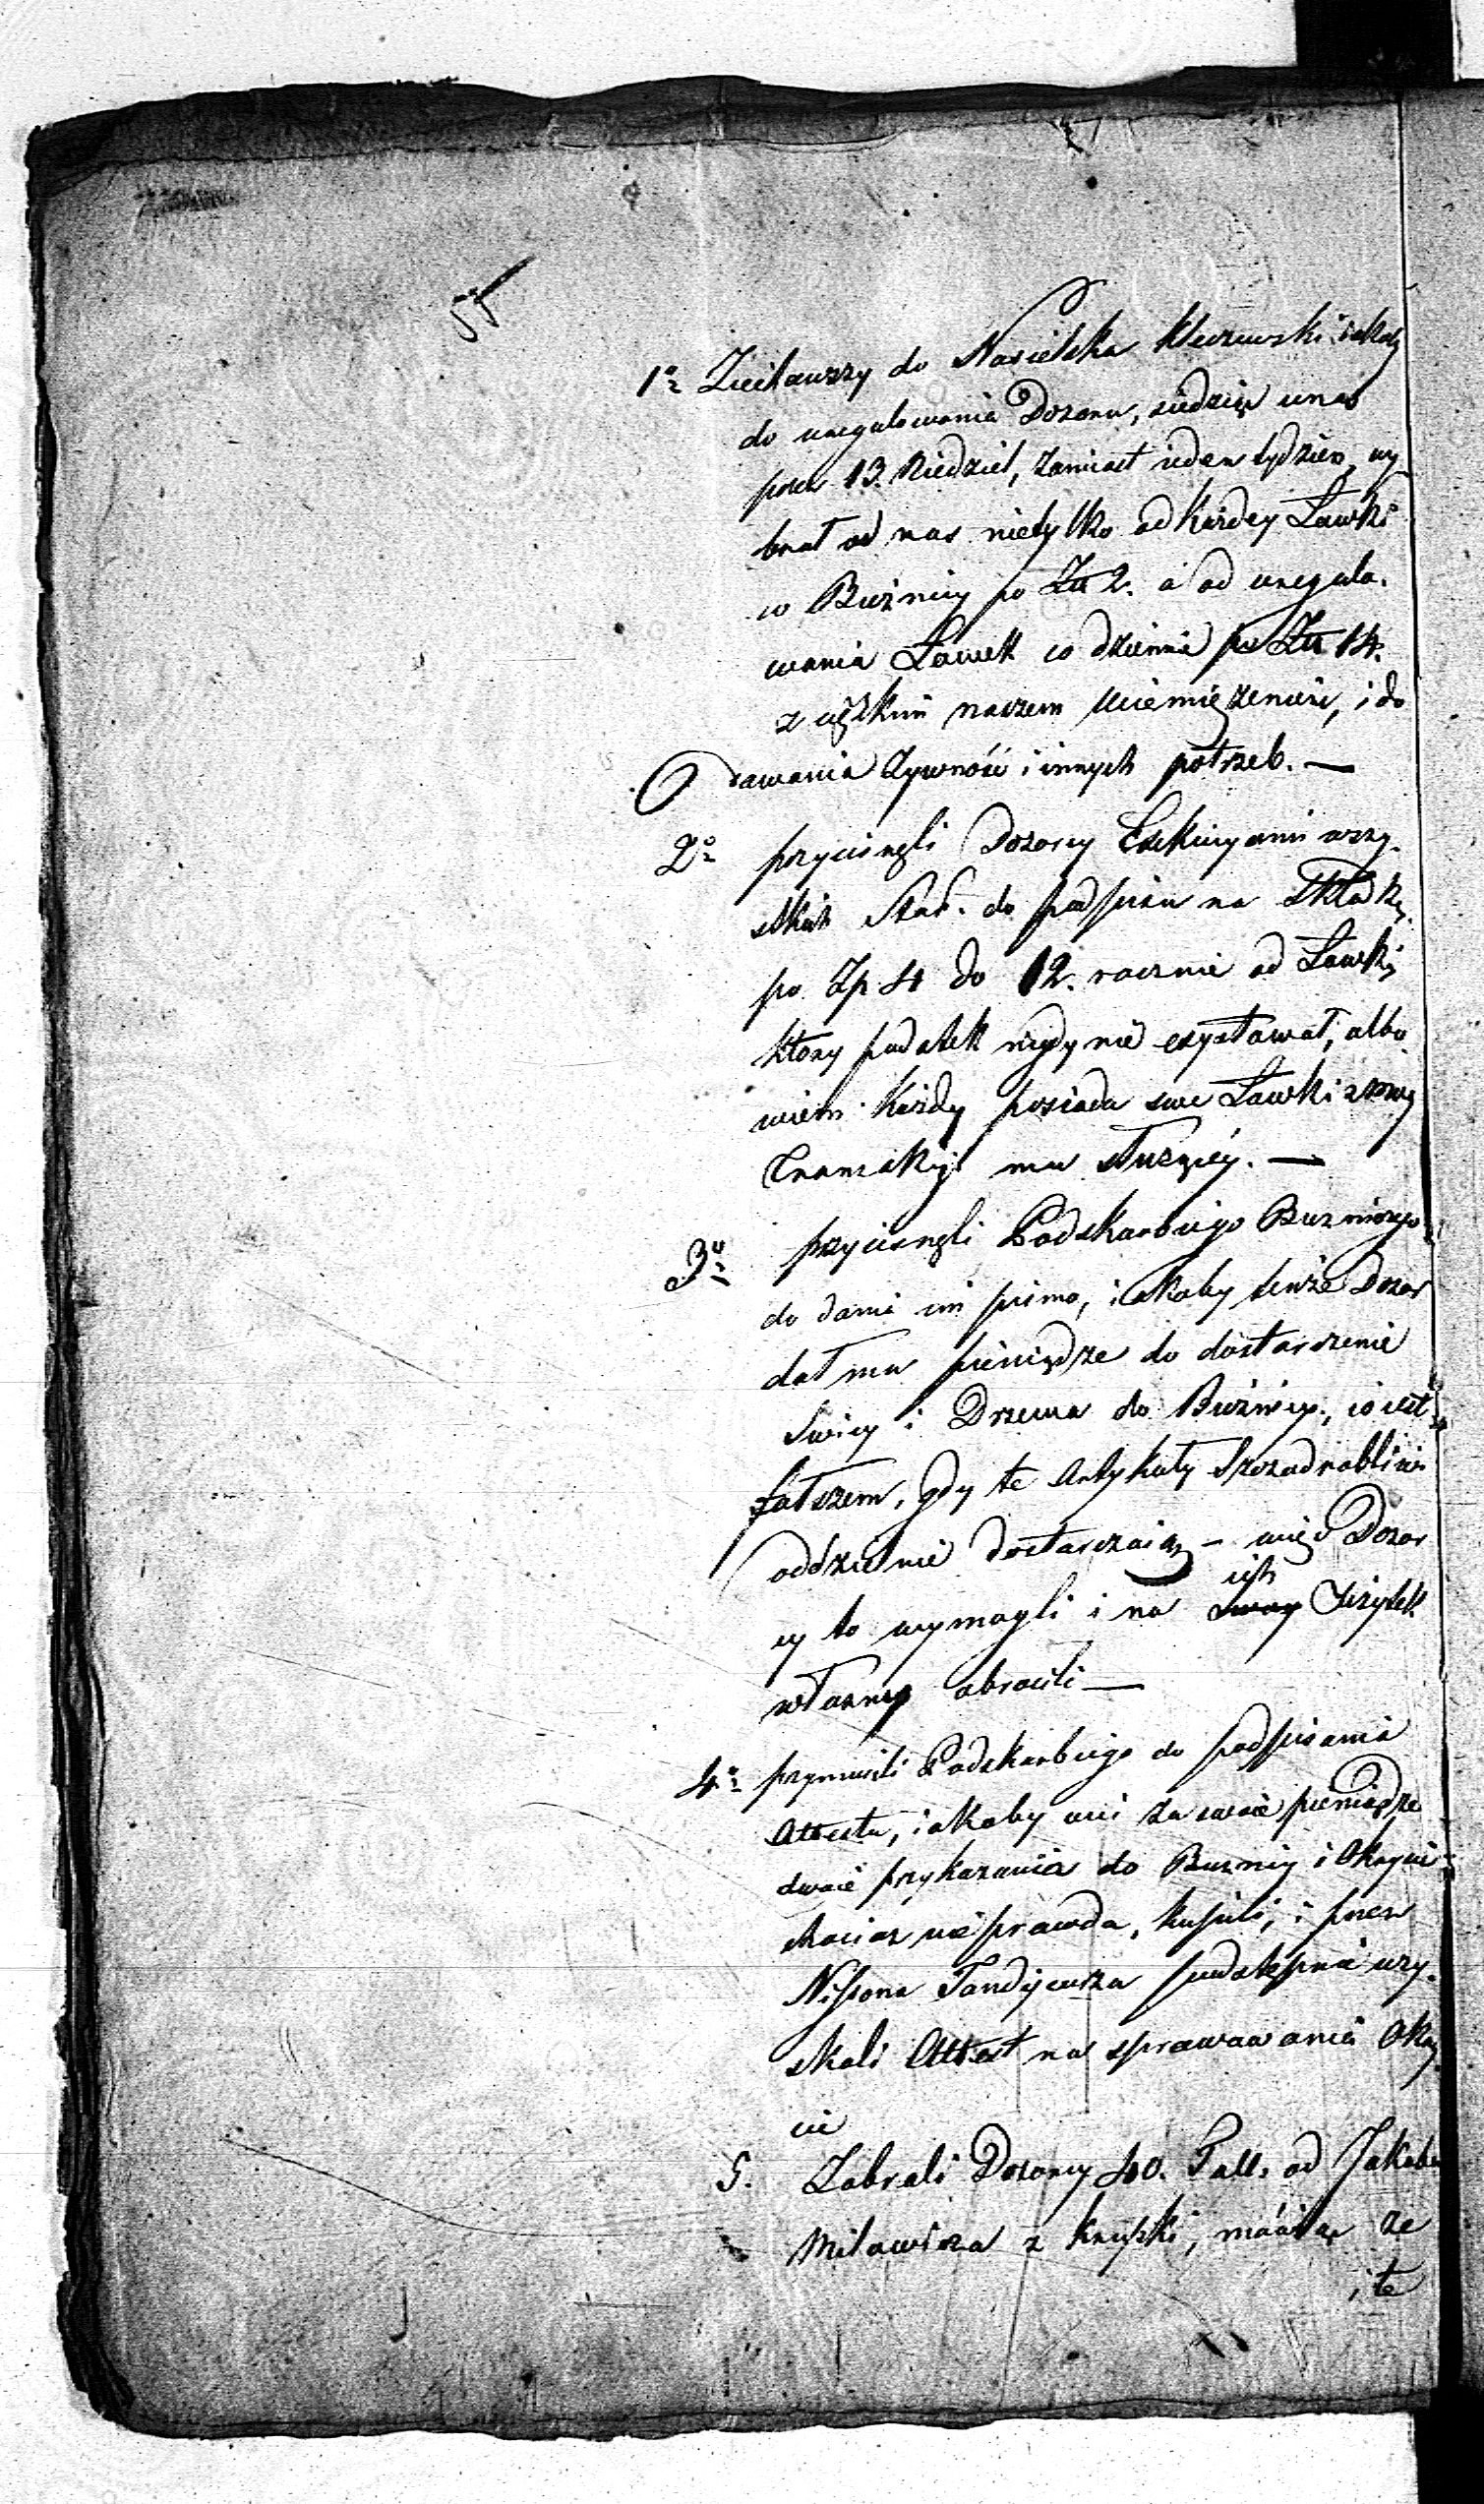 55
1o Ziechawszy do Nasielska Kleczewski iakoby
do uregulowania Dozoru, siedząc u nas
przez 13. Niedziel, zamiast ieden tydzień, wy
brał od nas nietylko od każdey Ławki
w Bużnicy po Zł 2. a od uregulo-
wania Ławek co dziennie po Zł 14.
z ciężkim naszem uciemiężeniem, i do
dawania Zywności i innych potrzeb. —
2o przycisnęli Dozorcy Exekucyami wszy-
stkich Star. do podpisu na Składkę
po Zp 4 do 12. rocznie od Ławki,
ktory podatek nigdy nie exystował, albo
wiem każdy posiada swe Ławki z mocy
Tranzakcyi mu służącéy. —
3o przycisnęli Podskarbiego Bużniczego
do dania im pisma, iakoby tenże Dozor
dał mu pieniądze do dostarczenia
Swiec i Drzewa do Bużnicy, co iest
fałszem, gdy te Artykuły Szczodrobliwi
oddzielnie dostarczaią — więc Dozor
cy to wymogli i na swoy ich Użytek
własny obrocili —
4o przymusili Podskarbiego do podpisania
Attestu, iakoby oni za swoie pieniądze
dwoie przykazania do Bużnicy i Okrycie
chociaż nie prawda, kupili, i przez
Nissona Tandyciarza podstępnie uzy-
skali Attest na sprawowanie Okry
cie
5. Zabrali Dozorcy 40. Tall. od Jakuba
Milawsza z Kryski, mówiąc że
i te